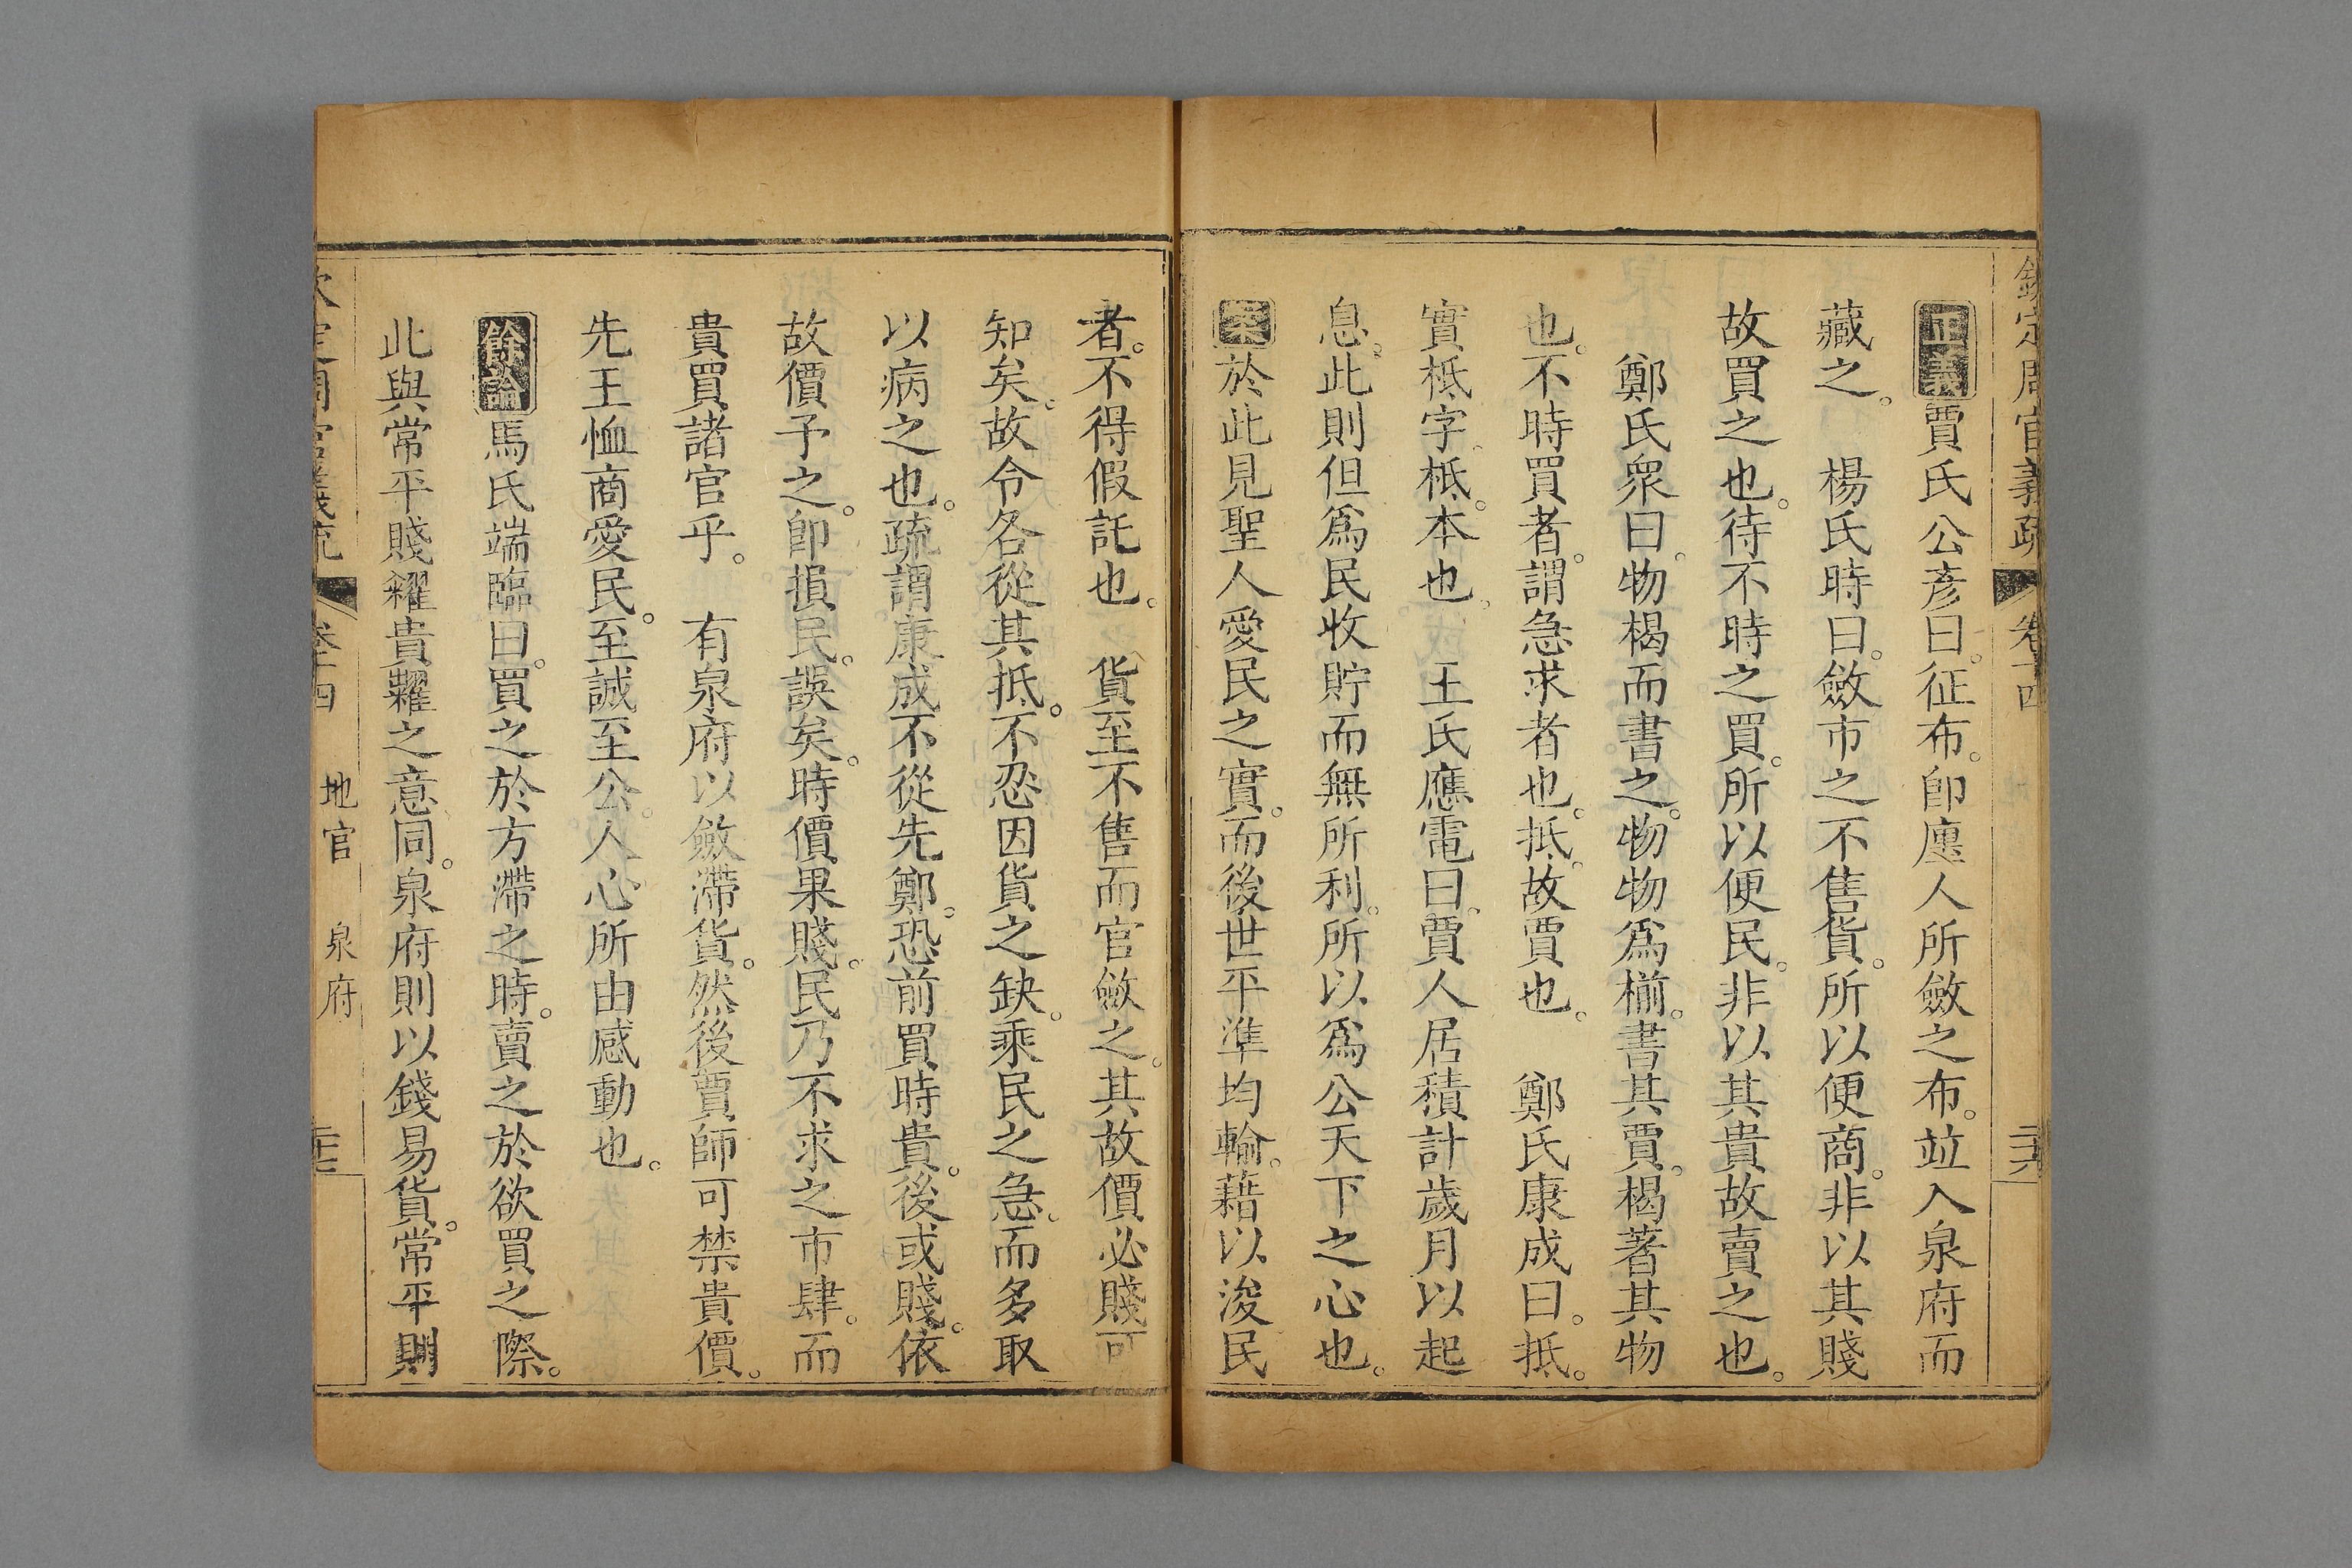 欽定周官義疏 卷十四
正義賈氏公彥曰。征布。卽廛人所斂之布。竝入泉府而
藏之。 楊氏時曰。斂市之不售貨。所以便商。非以其賤
故買之也。待不時之買。所以便民。非以其貴故賣之也。
鄭氏衆曰。物楬而書之。物物爲揃。書其賈。楬著其物
也。不時買者。謂急求者也。抵。故賈也。 鄭氏康成曰。抵。
實柢字。柢。本也。 王氏應電曰。賈人居積計歲月以起
息。此則但爲民收貯而無所利。所以爲公天下之心也。
案於此見聖人愛民之實。而後世平準均輸。藉以浚民
者。不得假託也。 貨至不售而官斂之。其故價必賤可
知矣。故令各從其抵。不忍因貨之缺。乘民之急。而多取
以病之也。疏謂康成不從先鄭。恐前買時貴。後或賤。依
故價予之。卽損民。誤矣。時價果賤。民乃不求之市肆。而
貴買諸官乎。 有泉府以斂滯貨。然後賈師可禁貴價。
先王恤商愛民。至誠至公。人心所由感動也。
餘論馬氏端臨曰。買之於方滯之時。賣之於欲買之際。
此與常平賤糴貴糶之意同。泉府則以錢易貨。常平則
欽定周官義疏 卷十四 地官 泉府